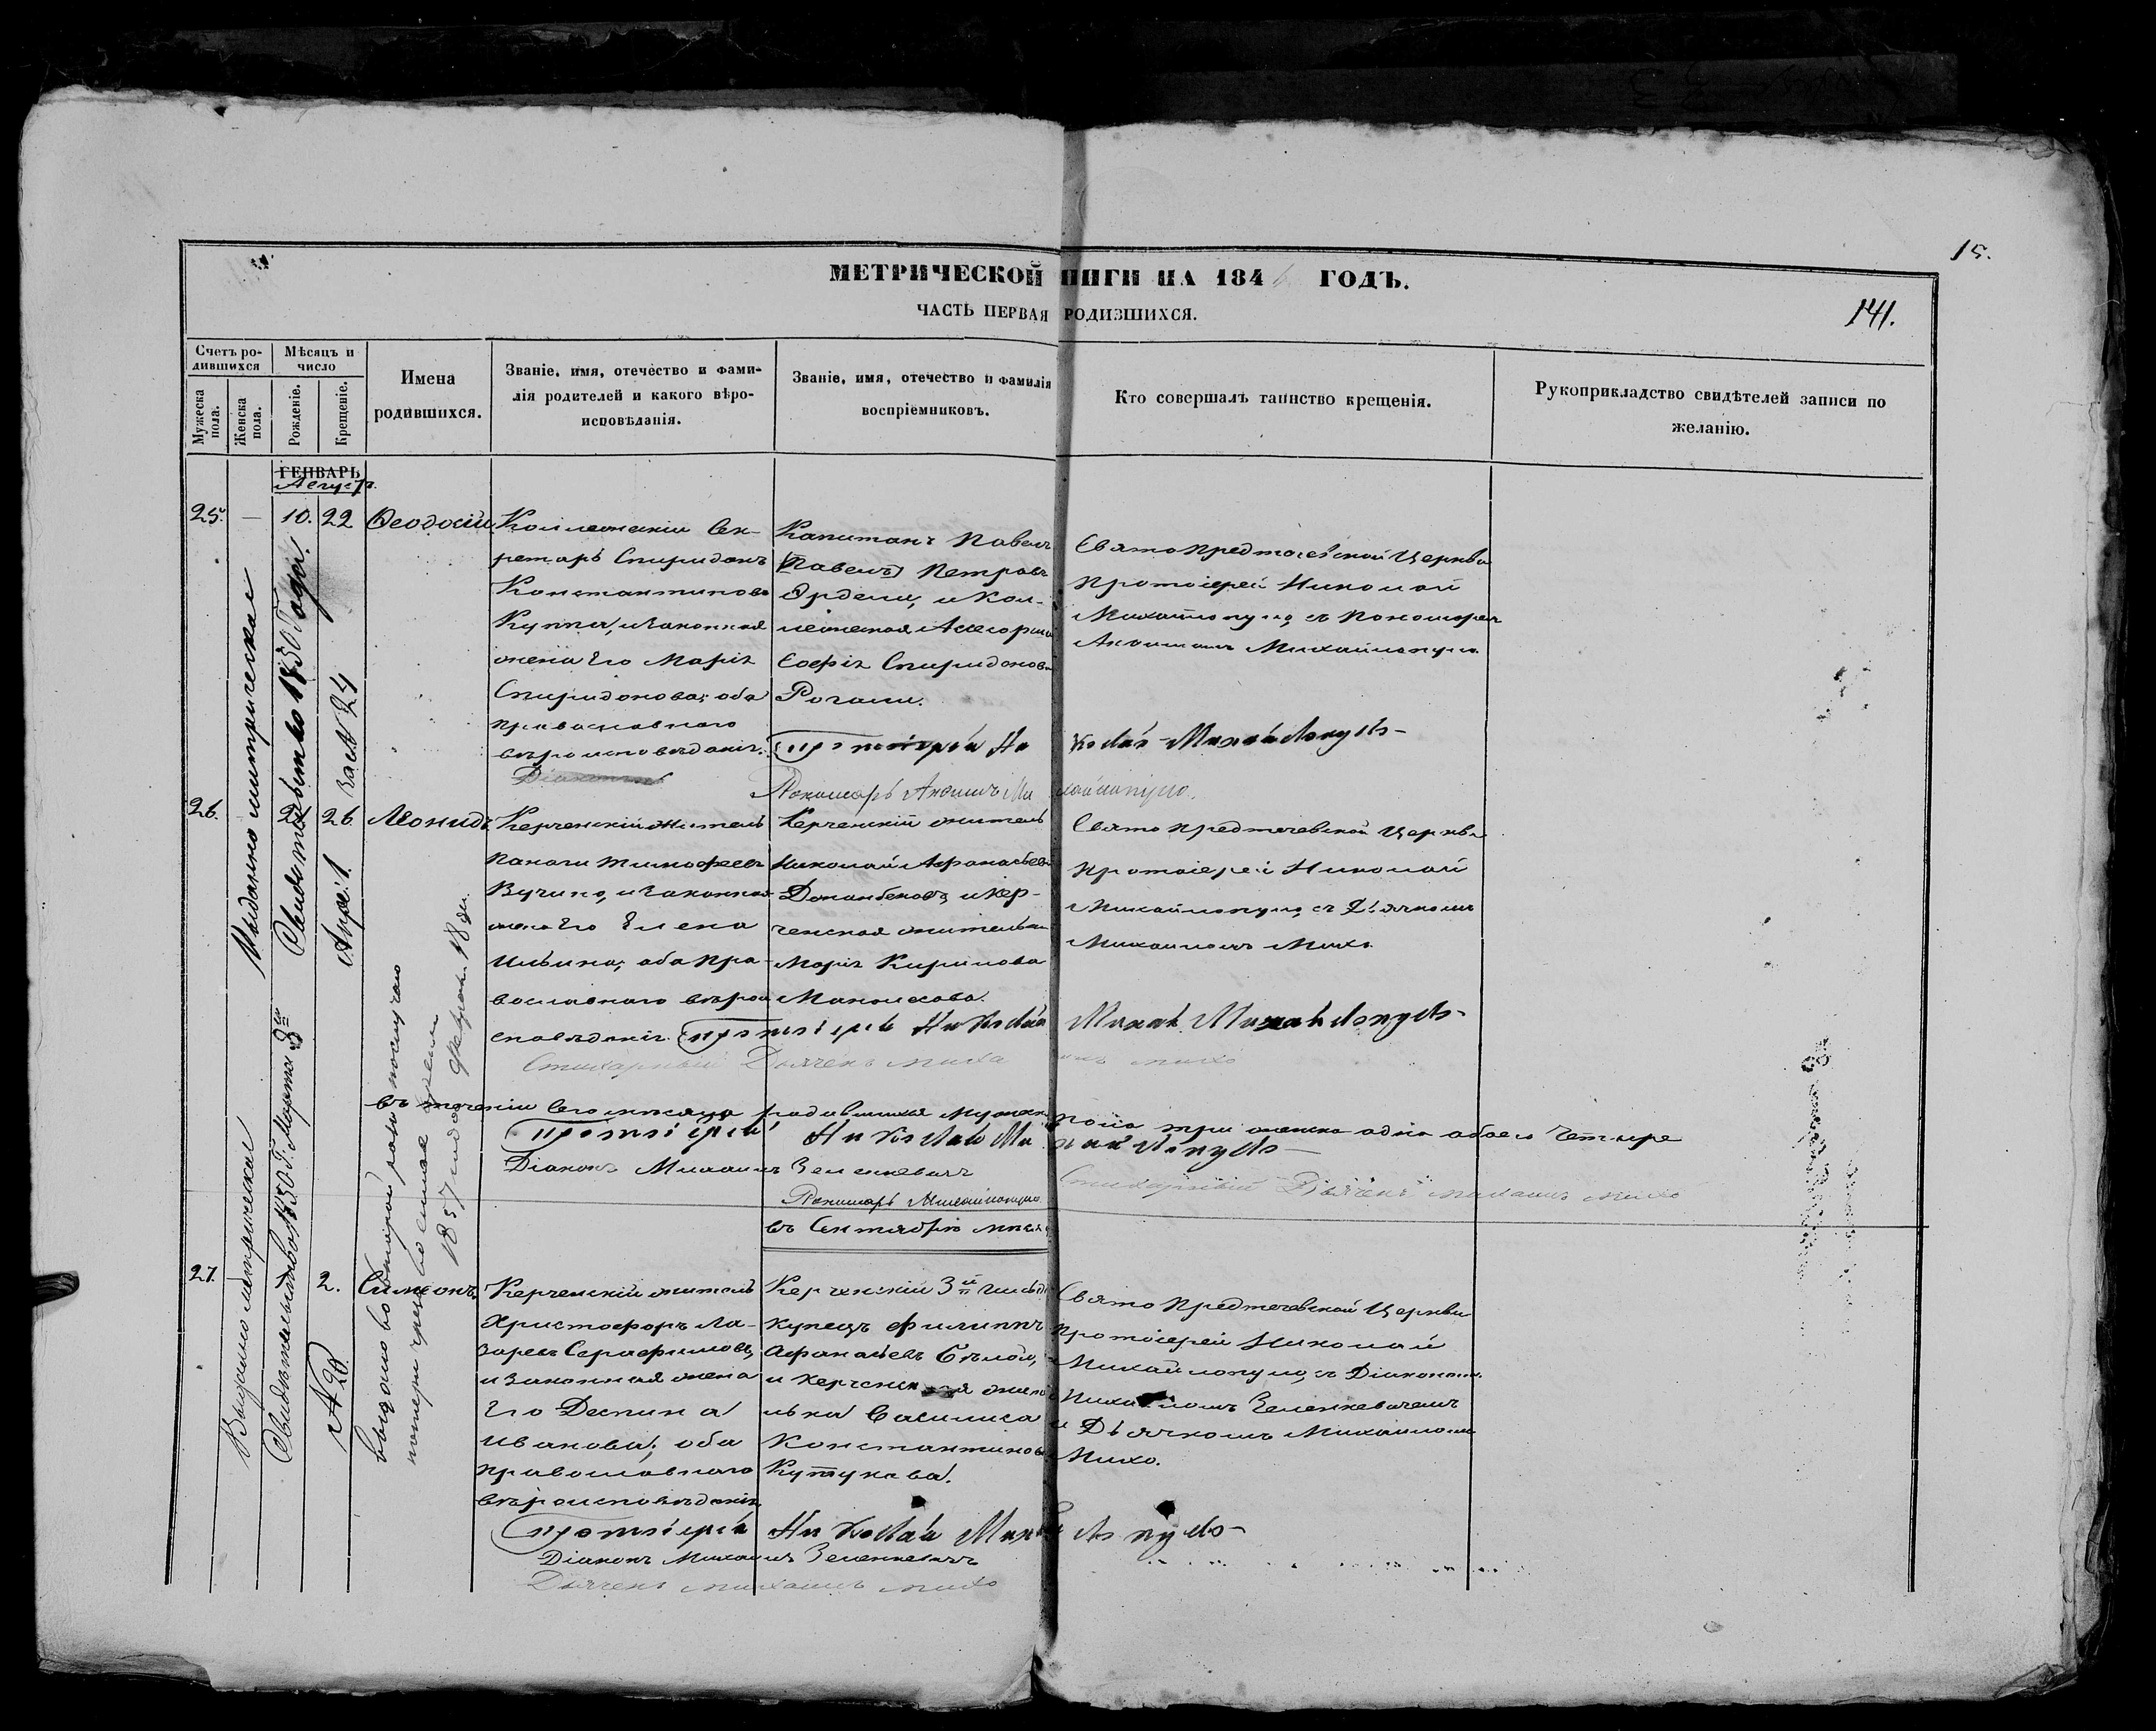 15.
МЕТРИЧЕСКОЙ НИГИ НА 184 ГОДЪ.
ЧАСТЬ ПЕРВАЯ РОДИВШИХСЯ.
141.
Счетъ ро-
дившихся
Мужеска
пола.
Женска
пола.
Мѣсяцъ и
число
Рожденіе.
Крещеніе.
Имена
родившихся.
Званіе, имя, отечество и фами-
лія родителей и какого вѣро-
исповѣданія.
Званіе, имя, отечество и фамилія
воспріемниковъ.
Кто совершалъ таинство крещенія.
Рукоприкладство свидѣтелей записи по
желанію.
ГЕНВАРЬ
Августъ
25.
—
10.
22
Ѳеодосій
Коллежскій Сек-
ретарь Спиридонъ
Константиновъ
Куппа, и законная
жена Его Марія
Спиридонова; оба
православнаго
вѣроисповѣданія.
Капитанъ Павелъ
[Павелъ] Петровъ
и Кол-
лежская
Софія Спиридонова
Свято Предтечевской Церкви
Протоіерей Николай
Михайлопуло, съ Пономаремъ
Михайлопуло
Протоіерей Николай Михайлопуло
Пономарь Михайлопуло.
Выдано митрическое
Свидѣтельство 1850 Года.
Апрѣ. 1.
26.
26
Леонидъ
Керченскій житель
Панаги Тимофеевъ
Вучино, и законная
жена Его Елена
Ильина; оба пра-
вославнаго вѣрои
сповѣданія.
Керченскій житель
Николай Афанасьевъ
и Кер-
ченская жительница
Марія Кирилова
Свято Предтечевской Церкви
Протоіерей Николай
Михайлопуло, съ Дьячкомъ
Михаиломъ Михо.
Протоіерей Николай Михайлопуло
Стихарный Дьячекъ Михаилъ Михо
въ теченіи сего мѣсяца родившихся мужеска пола три женска одна обоего четыре
Протоіерей Николай Михайлопуло
Діаконъ Михаилъ Зеленкевичъ
Стихарный Дьячекъ Михаилъ Михо
Пономарь Михайлопуло
въ Сентябрѣ мѣся
27.
2.
Симеонъ.
Керченскій житель
Христофоръ Ла-
заревъ Серафимовъ,
и законная жена
Его Деспина
Иванова; оба
православнаго
вѣроисповѣданія.
Керченскій 3й гильд
купецъ Филиппъ
Афанасьевъ Бѣлой,
и Керченская житель
ница Василиса
Константинова
Свято Предтечевской Церкви
Протоіерей Николай
Михайлопуло, съ Діакономъ
Михаиломъ Зеленкевичемъ
и Дьячкомъ Михаиломъ
Михо.
Протоіерей Николай Михайлопуло
Діаконъ Михаилъ Зеленкевичъ
Дьячекъ Михаилъ Михо
Выдано метрическое
Свидѣтельство 1850 Г. Марта 3го
№ 20
выдано во второй разъ
1857 года Февраля 18 дн.